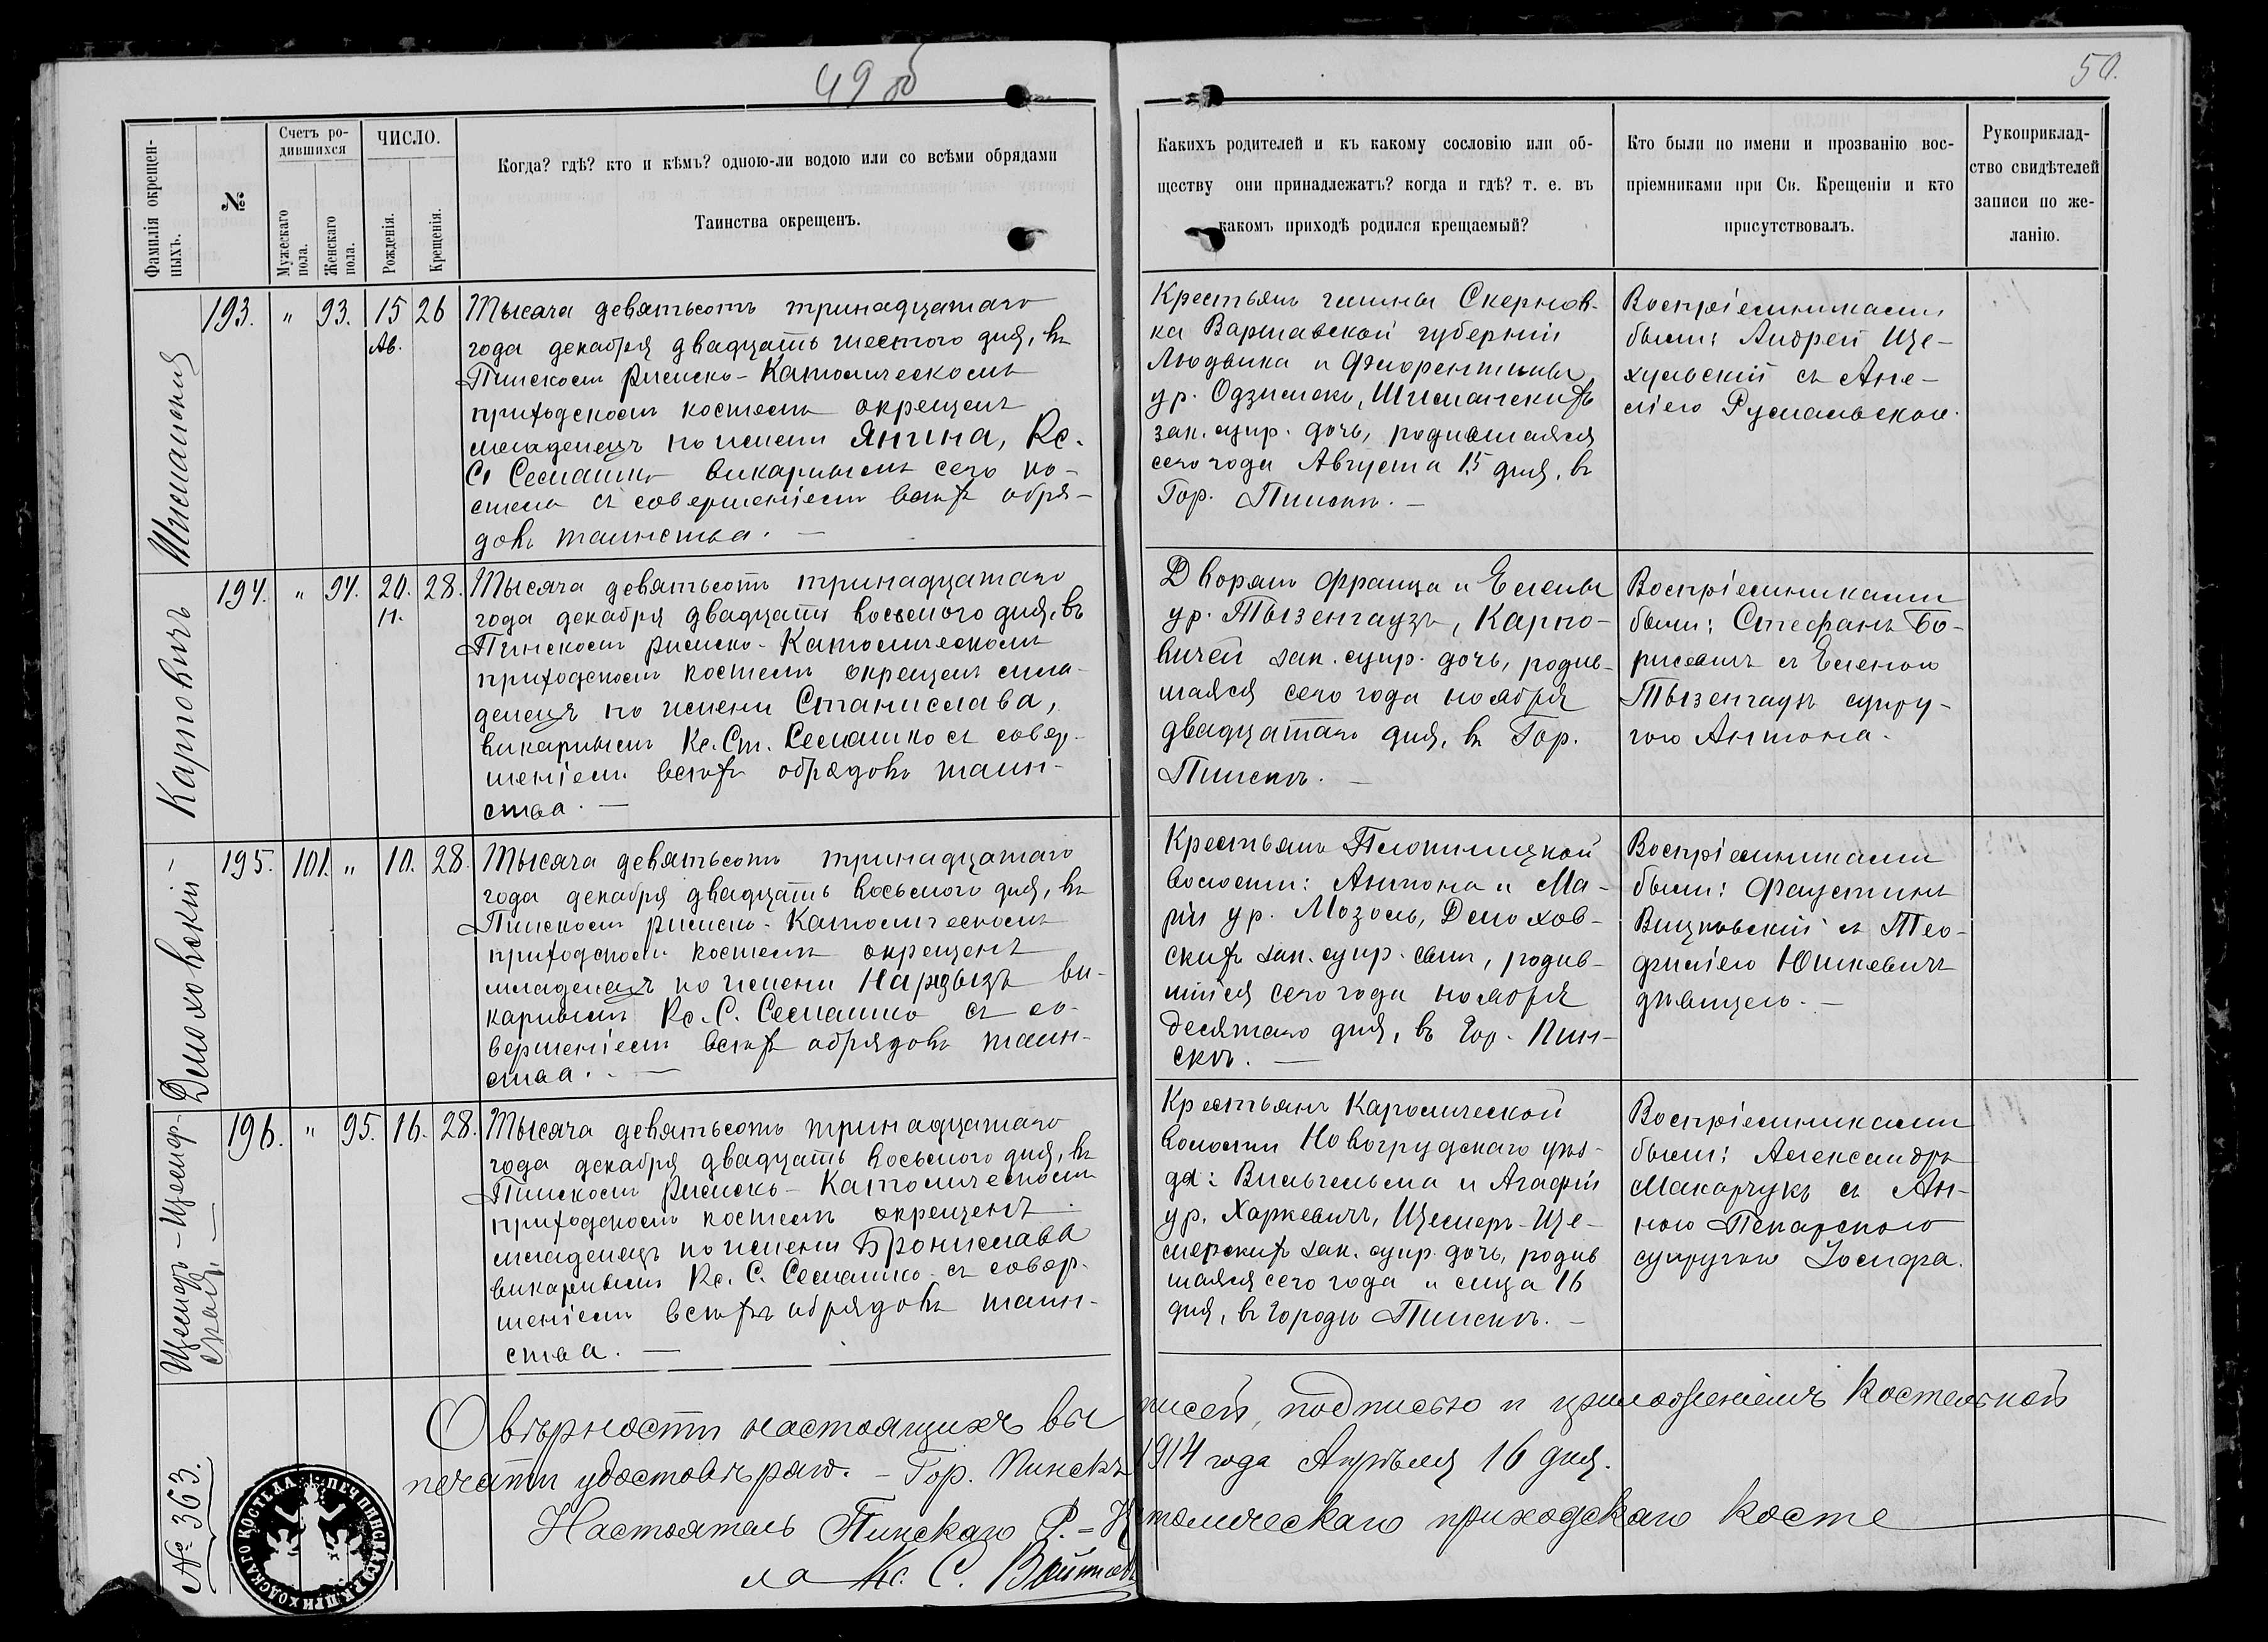 49 об
50.
Фамилія окрещен-
ныхъ.
№
Счетъ ро-
дившихся
Мужескаго
пола.
Женскаго
пола.
ЧИСЛО.
Рожденія.
Крещенія.
Когда? гдѣ? кто и кѣмъ? одною-ли водою или со всѣми обрядами
Таинства окрещенъ.
Какихъ родителей и къ какому сословію или об-
ществу они принадлежатъ? когда и гдѣ? т. е. въ
какомъ приходѣ родился крещаемый?
Кто были по имени и прозванію вос-
пріемниками при Св. Крещеніи и кто
присутствовалъ.
Рукоприклад-
ство свидѣтелей
записи по же-
ланію.
Шиманския
193. " 93. 15 26
Ав.
Тысяча девятьсотъ тринадцатаго
года декабря двадцать шестого дня, въ
Пинскомъ Римско-Католическомъ
приходскомъ костелѣ окрещенъ
младенецъ по имени Янина, Кс.
Ст Семашко викарнымъ сего ко-
стела съ совершеніемъ всѣхъ обря-
довъ таинства. —
Крестьянъ гмины Скернов-
ка Варшавской губерніи
Людвика и Флорентины
ур. Одзимокъ, Шиманскихъ
зак. супр. дочь, родившаяся
сего года Августа 15 дня, въ
Гор. Пинскѣ. —
Воспріемниками
были: Андрей Ще-
хульскій съ Апе-
ліею Русмальскою.
Карповичъ
194. " 94. 20. 28.
н.
Тысяча девятьсотъ тринадцатаго
года декабря двадцать восьмого дня, въ
Пинскомъ Римско-Католическомъ
приходскомъ костелѣ окрещенъ мла-
денецъ по имени Станислава,
викарнымъ Кс. Ст. Семашко съ совер-
шеніемъ всѣхъ обрядовъ таин-
ства. —
Дворянъ Франца и Елены
ур. Тызенгаузъ, Карпо-
вичей зак. супр. дочь, родив-
шаяся сего года ноября
двадцатаго дня, въ Гор.
Пинскѣ. —
Воспріемниками
были: Стефанъ Бо-
рисевичъ съ Еленою
Тызенгаузъ супру-
гою Антона.
Демоховскій —
195. 101. " 10. 28.
Тысяча девятьсотъ тринадцатаго
года декабря двадцать восьмого дня, въ
Пинскомъ Римско-Католическомъ
приходскомъ костелѣ окрещенъ
младенецъ по имени Нарцызъ ви-
карнымъ Кс. С. Семашко съ со-
вершеніемъ всѣхъ обрядовъ таин-
ства. —
Крестьянъ Плотницкой
волости: Антона и Ма-
ріи ур. Мозоль, Демохов-
скихъ зак. супр. сынъ, родив-
шійся сего года ноября
десятаго дня, въ Гор. Пин-
скѣ. —
Воспріемниками
были: Фаустинъ
Вицковскій съ Тео-
филіею Юшкевичъ
дѣвицею. —
Щемеръ-Щемер-
ская. —
196. " 95. 16. 28.
Тысяча девятьсотъ тринадцатаго
года декабря двадцать восьмого дня, въ
Пинскомъ Римско-Католическомъ
приходскомъ костелѣ окрещенъ
младенецъ по имени Бронислава
викарнымъ Кс. С. Семашко съ совер-
шеніемъ всѣхъ обрядовъ таин-
ства. —
Крестьянъ Каролической
волости Новогрудскаго уѣз-
да: Вильгельма и Агафіи
ур. Харкевичъ, Щемеръ-Ще-
мерскихъ зак. супр. дочь, родив
шаяся сего года и мца 16
дня, въ городѣ Пинскѣ. —
Воспріемниками
были: Александръ
Макарчукъ съ Ан-
ною Пекарскою
супругою Іосифа.
О вѣрности настоящихъ выписей, подписью и приложеніемъ Костельной
печати удостовѣряю. — Гор. Пинскъ 1914 года Апрѣля 16 дня.
Настоятель Пинскаго Р.-Католическаго приходскаго косте
ла Кс. С.
№ 363.
ПЕЧ ПИНСКАГО Р. К. ПРИХОДСКАГО КОСТЕЛА